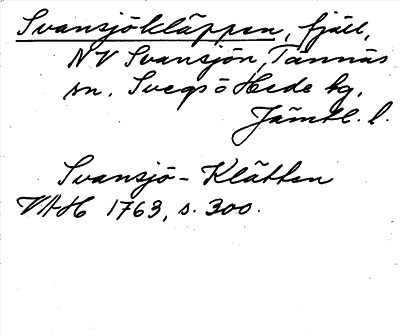 Svansjökläppen, fjäll,
NV Svansjön, Tännäs
sn. Svegs o Hede tg.
Jämtl. l.
Svansjö-Klätten
VAH 1763, s. 300.